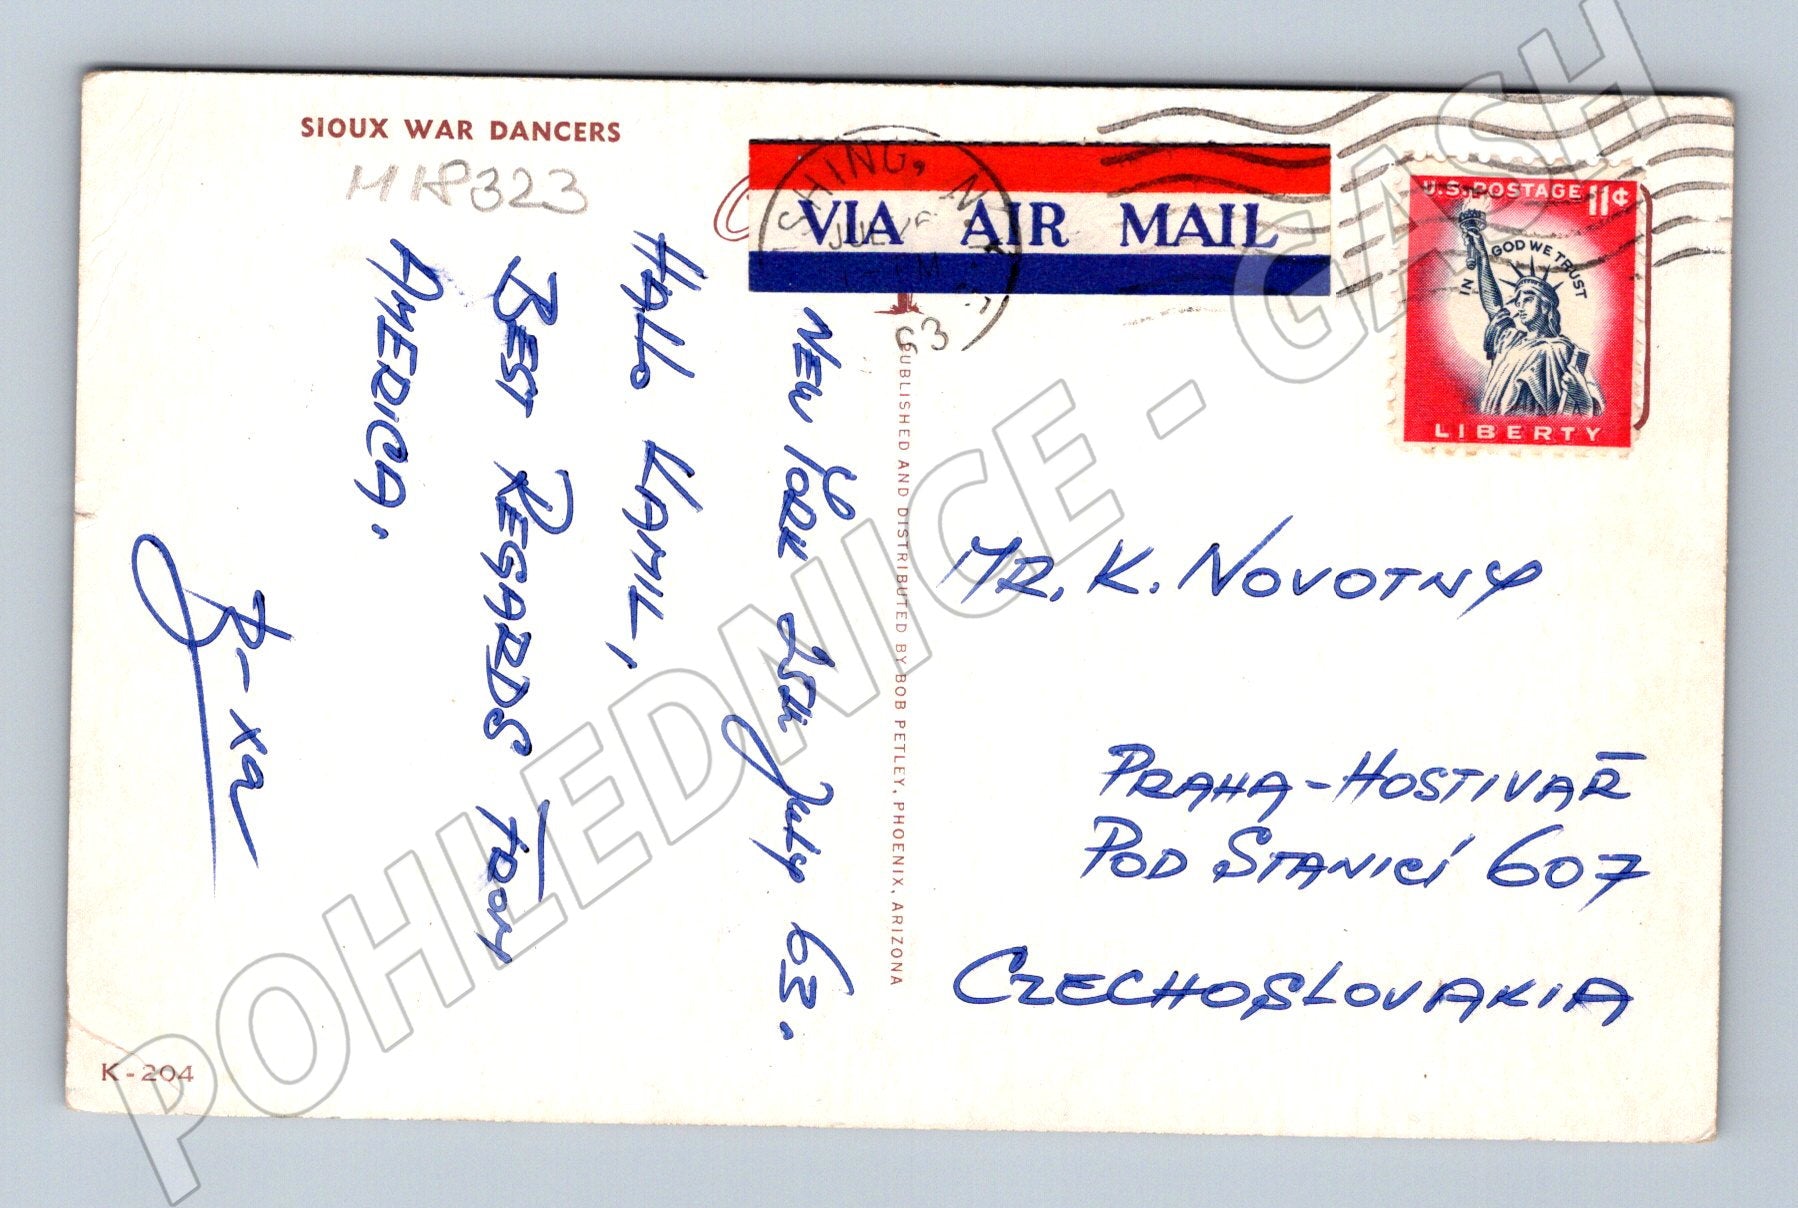 SIOUX WAR DANCERS
VIA AIR MAIL
SHING, N
63
U.S. POSTAGE 11¢
IN GOD WE TRUST
LIBERTY
NEW YORK 25TH July 63.
HALLO KAMIL,
BEST REGARDS FROM
AMERICA.
PUBLISHED AND DISTRIBUTED BY BOB PETLEY, PHOENIX, ARIZONA
MR. K. NOVOTNY
PRAHA-HOSTIVAŘ
POD STANICÍ 607
CZECHOSLOVAKIA
K-204
POHLEDNICE - GASH